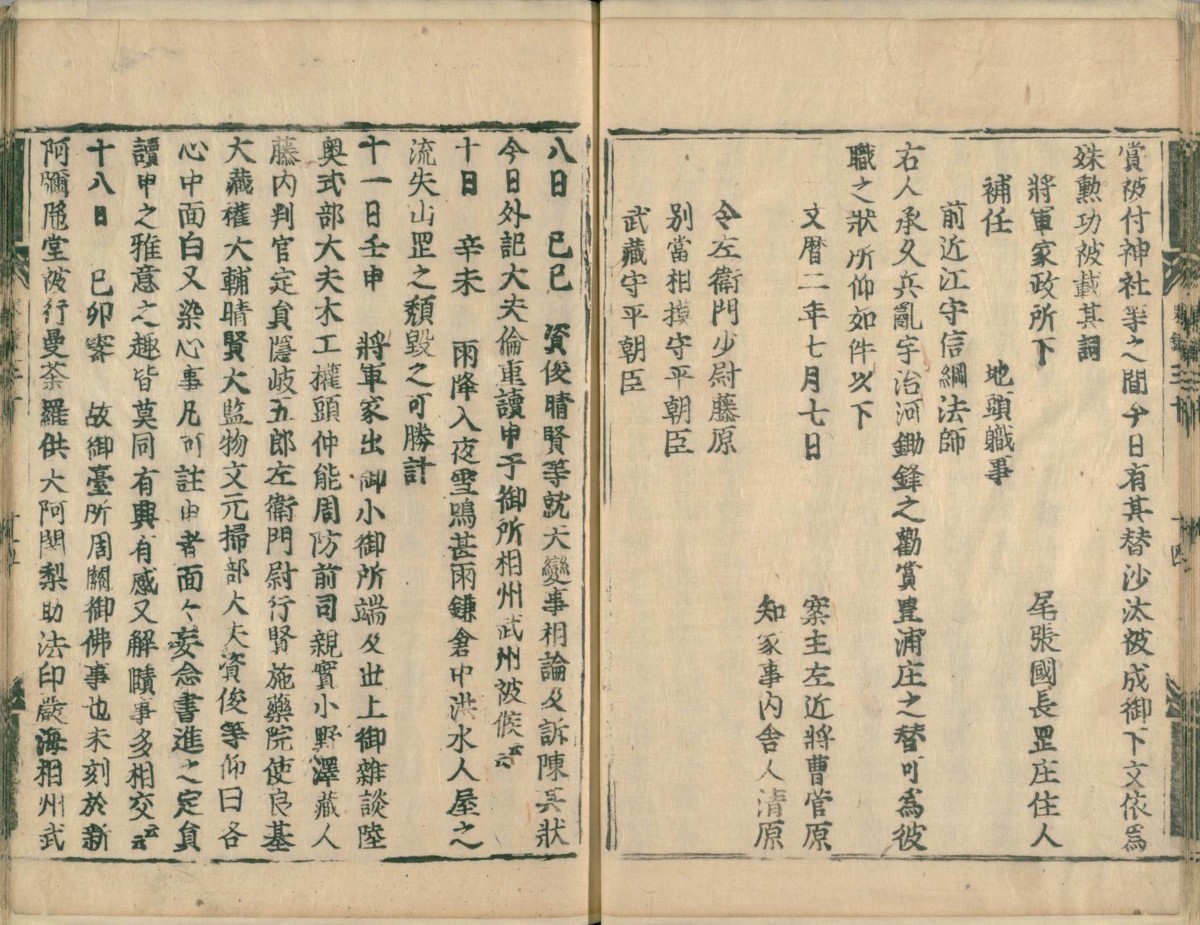 賞被付神社等之間今日有其替沙汰被成御下文依爲
殊勲功被載其詞
將軍家政所下　尾張國長罡庄住人
補任　地頭職事
前近江守信綱法師
右人承久兵亂宇治河鋤鋒之勸賞豊浦庄之替可爲彼
職之狀所仰如件以下
文暦二年七月七日　案主左近將曹菅原
知家事内舎人清原
令左衛門少尉藤原
別當相摸守平朝臣
武藏守平朝臣
八日　己巳　資俊晴賢等就大變事相論及訴陳具狀
今日外記大夫倫重讀申于御所相州武州被候云云
十日　辛未　雨降入夜雪鳴甚雨鎌倉中洪水人屋之
流失山罡之頽毀之可勝計
十一日壬申　將軍家出御小御所端及世上御雜談陸
奥式部大夫木工權頭仲能周防前司親實小野澤藏人
藤内判官定員隱岐五郎左衛門尉行賢施藥院使良基
大藏權大輔晴賢大監物文元掃部大夫資俊等仰曰各
心中面白又染心事凡可註申者面々妄念書進之定員
讀申之雅意之趣皆莫同有興有感又解賾事多相交云云
十八日　己卯霽　故御臺所周關御佛事也未刻於新
阿彌陁堂被行曼荼羅供大阿闍梨助法印嚴海相州武